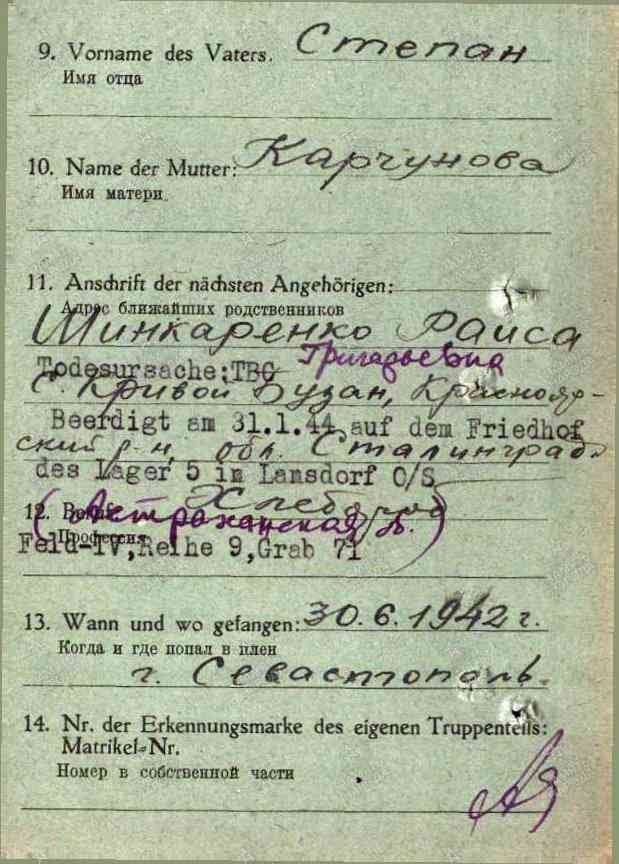 9. Vorname des Vaters. Степан
Имя отца
10. Name der Mutter: Карчунова
Имя матери
11. Anschrift der nächsten Angehörigen:
Адрес ближайших родственников
Минкаренко Раиса
Григорьевна
Todesursache:TBC
с. Кривой Бузан, Краснояр-
Beerdigt am 31.1.44 auf dem Friedhof
ский р-н, обл. Сталинград.
des Lager 5 in Lamsdorf O/S
12. Beruf: Хлебороб
(Астраханская
Профессия
Feld-IV,Reihe 9,Grab 71
13. Wann und wo gefangen: 30.6.1942 г.
Когда и где попал в плен
г. Севастополь.
14. Nr. der Erkennungsmarke des eigenen Truppenteils:
Matrikel-Nr.
Номер в собственной части